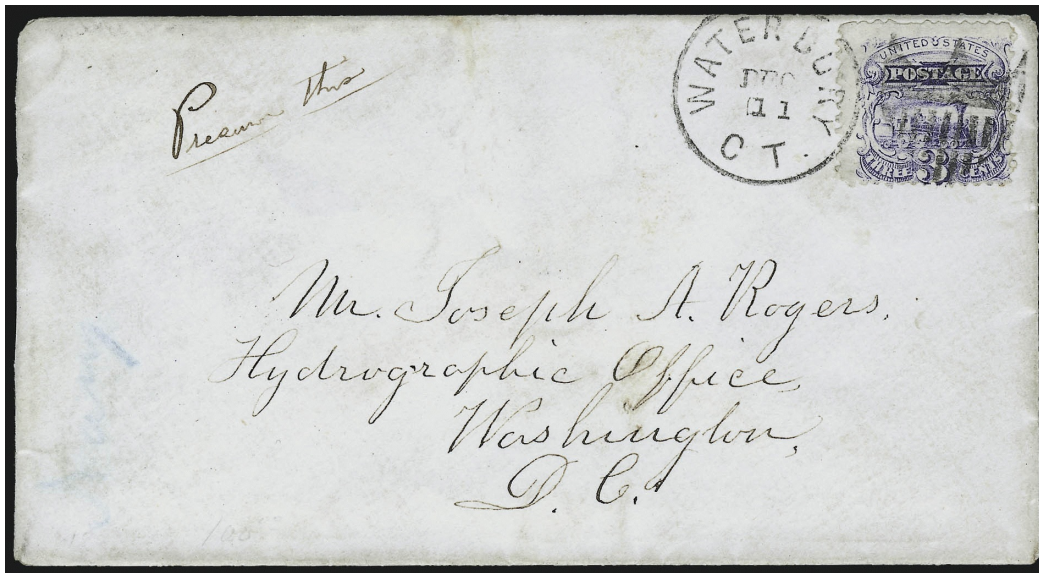 Preserve this
WATERBURY
DEC
11
CT.
UNITED STATES
POSTAGE
THREE 3 CENTS
Mr. Joseph A. Rogers,
Hydrographic Office,
Washington,
D. C.
100